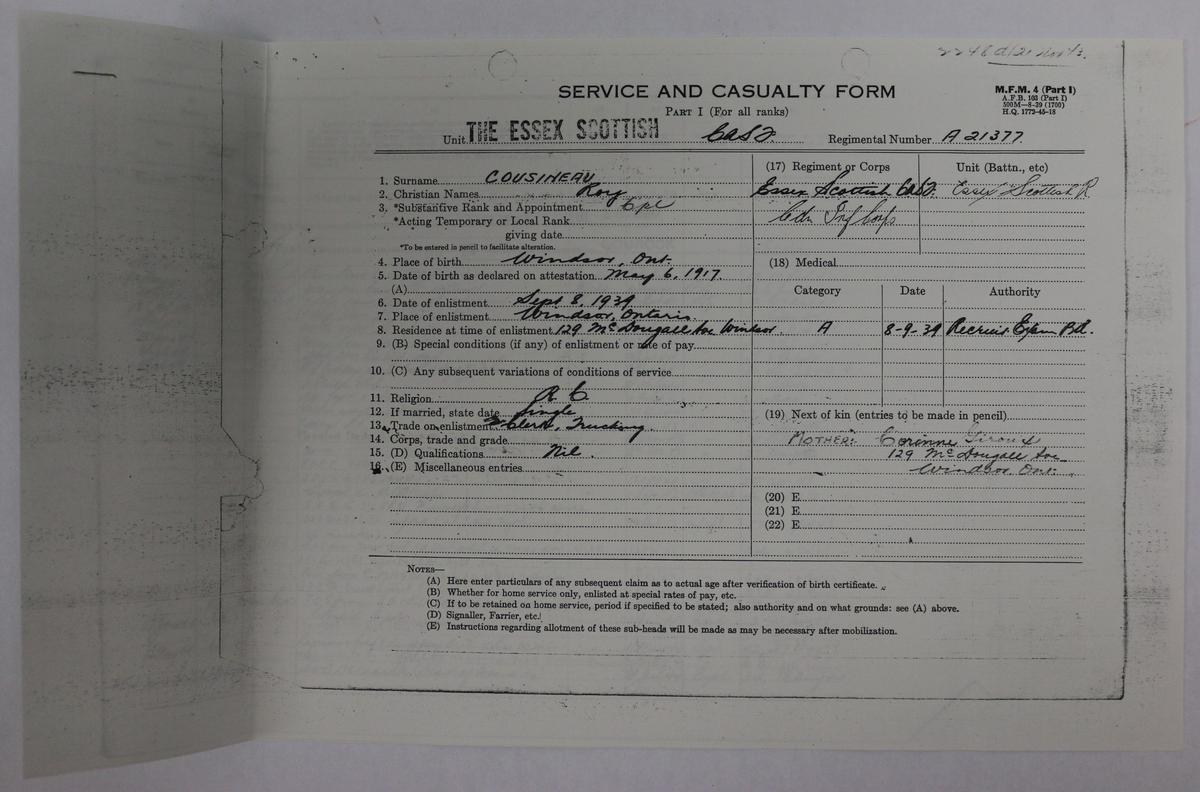 SERVICE AND CASUALTY FORM
M.F.M. 4 (Part I)
A.F.B. 103 (Part I)
500M—8-39 (1700)
H.Q. 1772-45-18
PART I (For all ranks)
Unit THE ESSEX SCOTTISH CASF. Regimental Number A 21377
1. Surname COUSINEAU
2. Christian Names Roy
3. *Substantive Rank and Appointment Cpl
*Acting Temporary or Local Rank
giving date
*To be entered in pencil to facilitate alteration.
4. Place of birth Windsor, Ont.
5. Date of birth as declared on attestation May 6, 1917.
(A)
6. Date of enlistment Sept 8, 1939
7. Place of enlistment Windsor, Ontario
8. Residence at time of enlistment 129 McDougall Ave Windsor
9. (B) Special conditions (if any) of enlistment or rate of pay
10. (C) Any subsequent variations of conditions of service
11. Religion R C
12. If married, state date Single
13. Trade on enlistment Clerk, Trucking
14. Corps, trade and grade
15. (D) Qualifications Nil.
16. (E) Miscellaneous entries
(17) Regiment or Corps Unit (Battn., etc)
Essex Scottish CASF. Essex Scottish R
Cdn Inf Corps
(18) Medical
Category Date Authority
A 8-9-39 Recruit Exam Bd.
(19) Next of kin (entries to be made in pencil)
MOTHER: Corinne Giroux
129 McDougall Ave
Windsor Ont.
(20) E
(21) E
(22) E
NOTES—
(A) Here enter particulars of any subsequent claim as to actual age after verification of birth certificate.
(B) Whether for home service only, enlisted at special rates of pay, etc.
(C) If to be retained on home service, period if specified to be stated; also authority and on what grounds: see (A) above.
(D) Signaller, Farrier, etc.
(E) Instructions regarding allotment of these sub-heads will be made as may be necessary after mobilization.